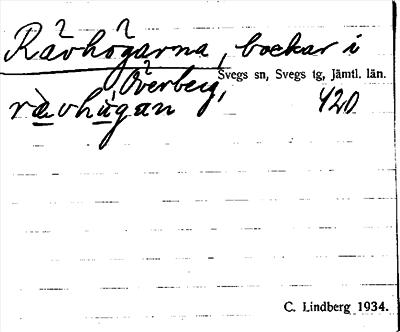 Rävhögarna, backar i
Överberg, Svegs sn, Svegs tg, Jämtl. län.
rævhùgan 420
C. Lindberg 1934.